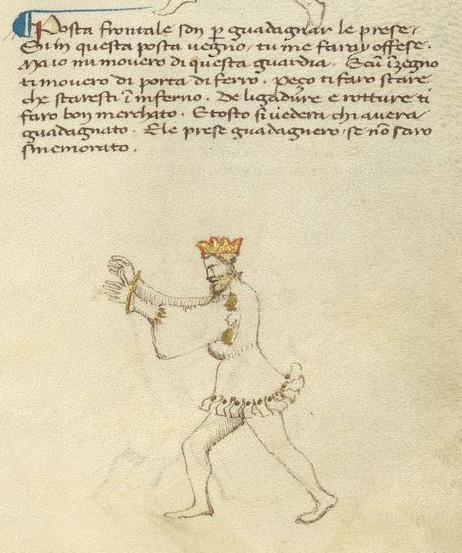 Posta frontale son per guadagnar le prese.
Si in questa posta vegno, tu me faray offese.
Ma io mi movero di questa guardia. E cu inzegno
ti movero di porta di ferro. Pezo ti faro stare
che staresti in inferno. De ligadure e rotture ti
faro bon merchato. E tosto si vedera chi avera
guadagnato. E le prese guadagnero se non saro
smemorato.